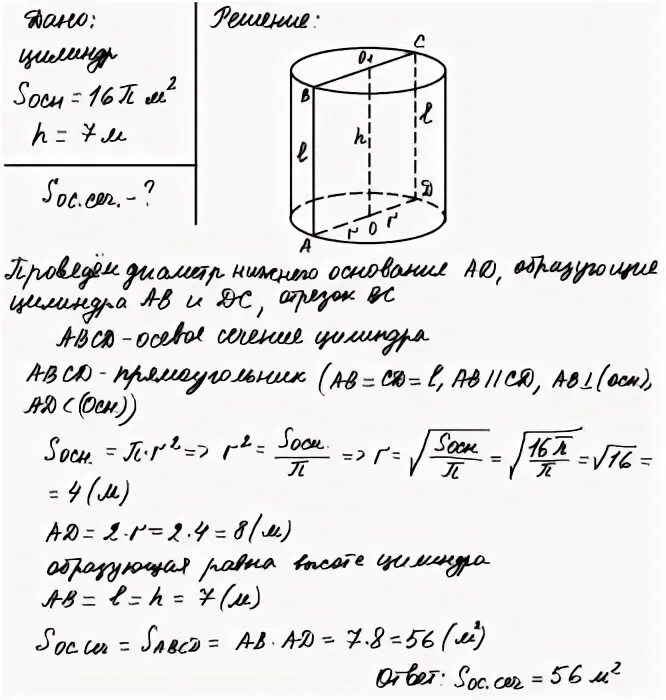 Дано:
цилиндр
Sосн = 16π м²
h = 7м
Sос.сеч. - ?
Решение:
C
O₁
B
h
l
l
D
r
O
r
A
Проведём диаметр нижнего основание AD, образующие
цилиндра AB и DC, отрезок BC
ABCD - осевое сечение цилиндра
ABCD - прямоугольник (AB = CD = l, AB ∥ CD, AB ⊥ (осн),
AD ⊂ (Осн))
Sосн. = π·r² => r² = Sосн./π => r = √(Sосн/π) = √(16π/π) = √16 =
= 4 (м)
AD = 2·r = 2·4 = 8 (м)
образующая равна высоте цилиндра
AB = l = h = 7 (м)
Sос.сеч = SABCD = AB · AD = 7·8 = 56 (м²)
Ответ: Sос.сеч = 56 м²